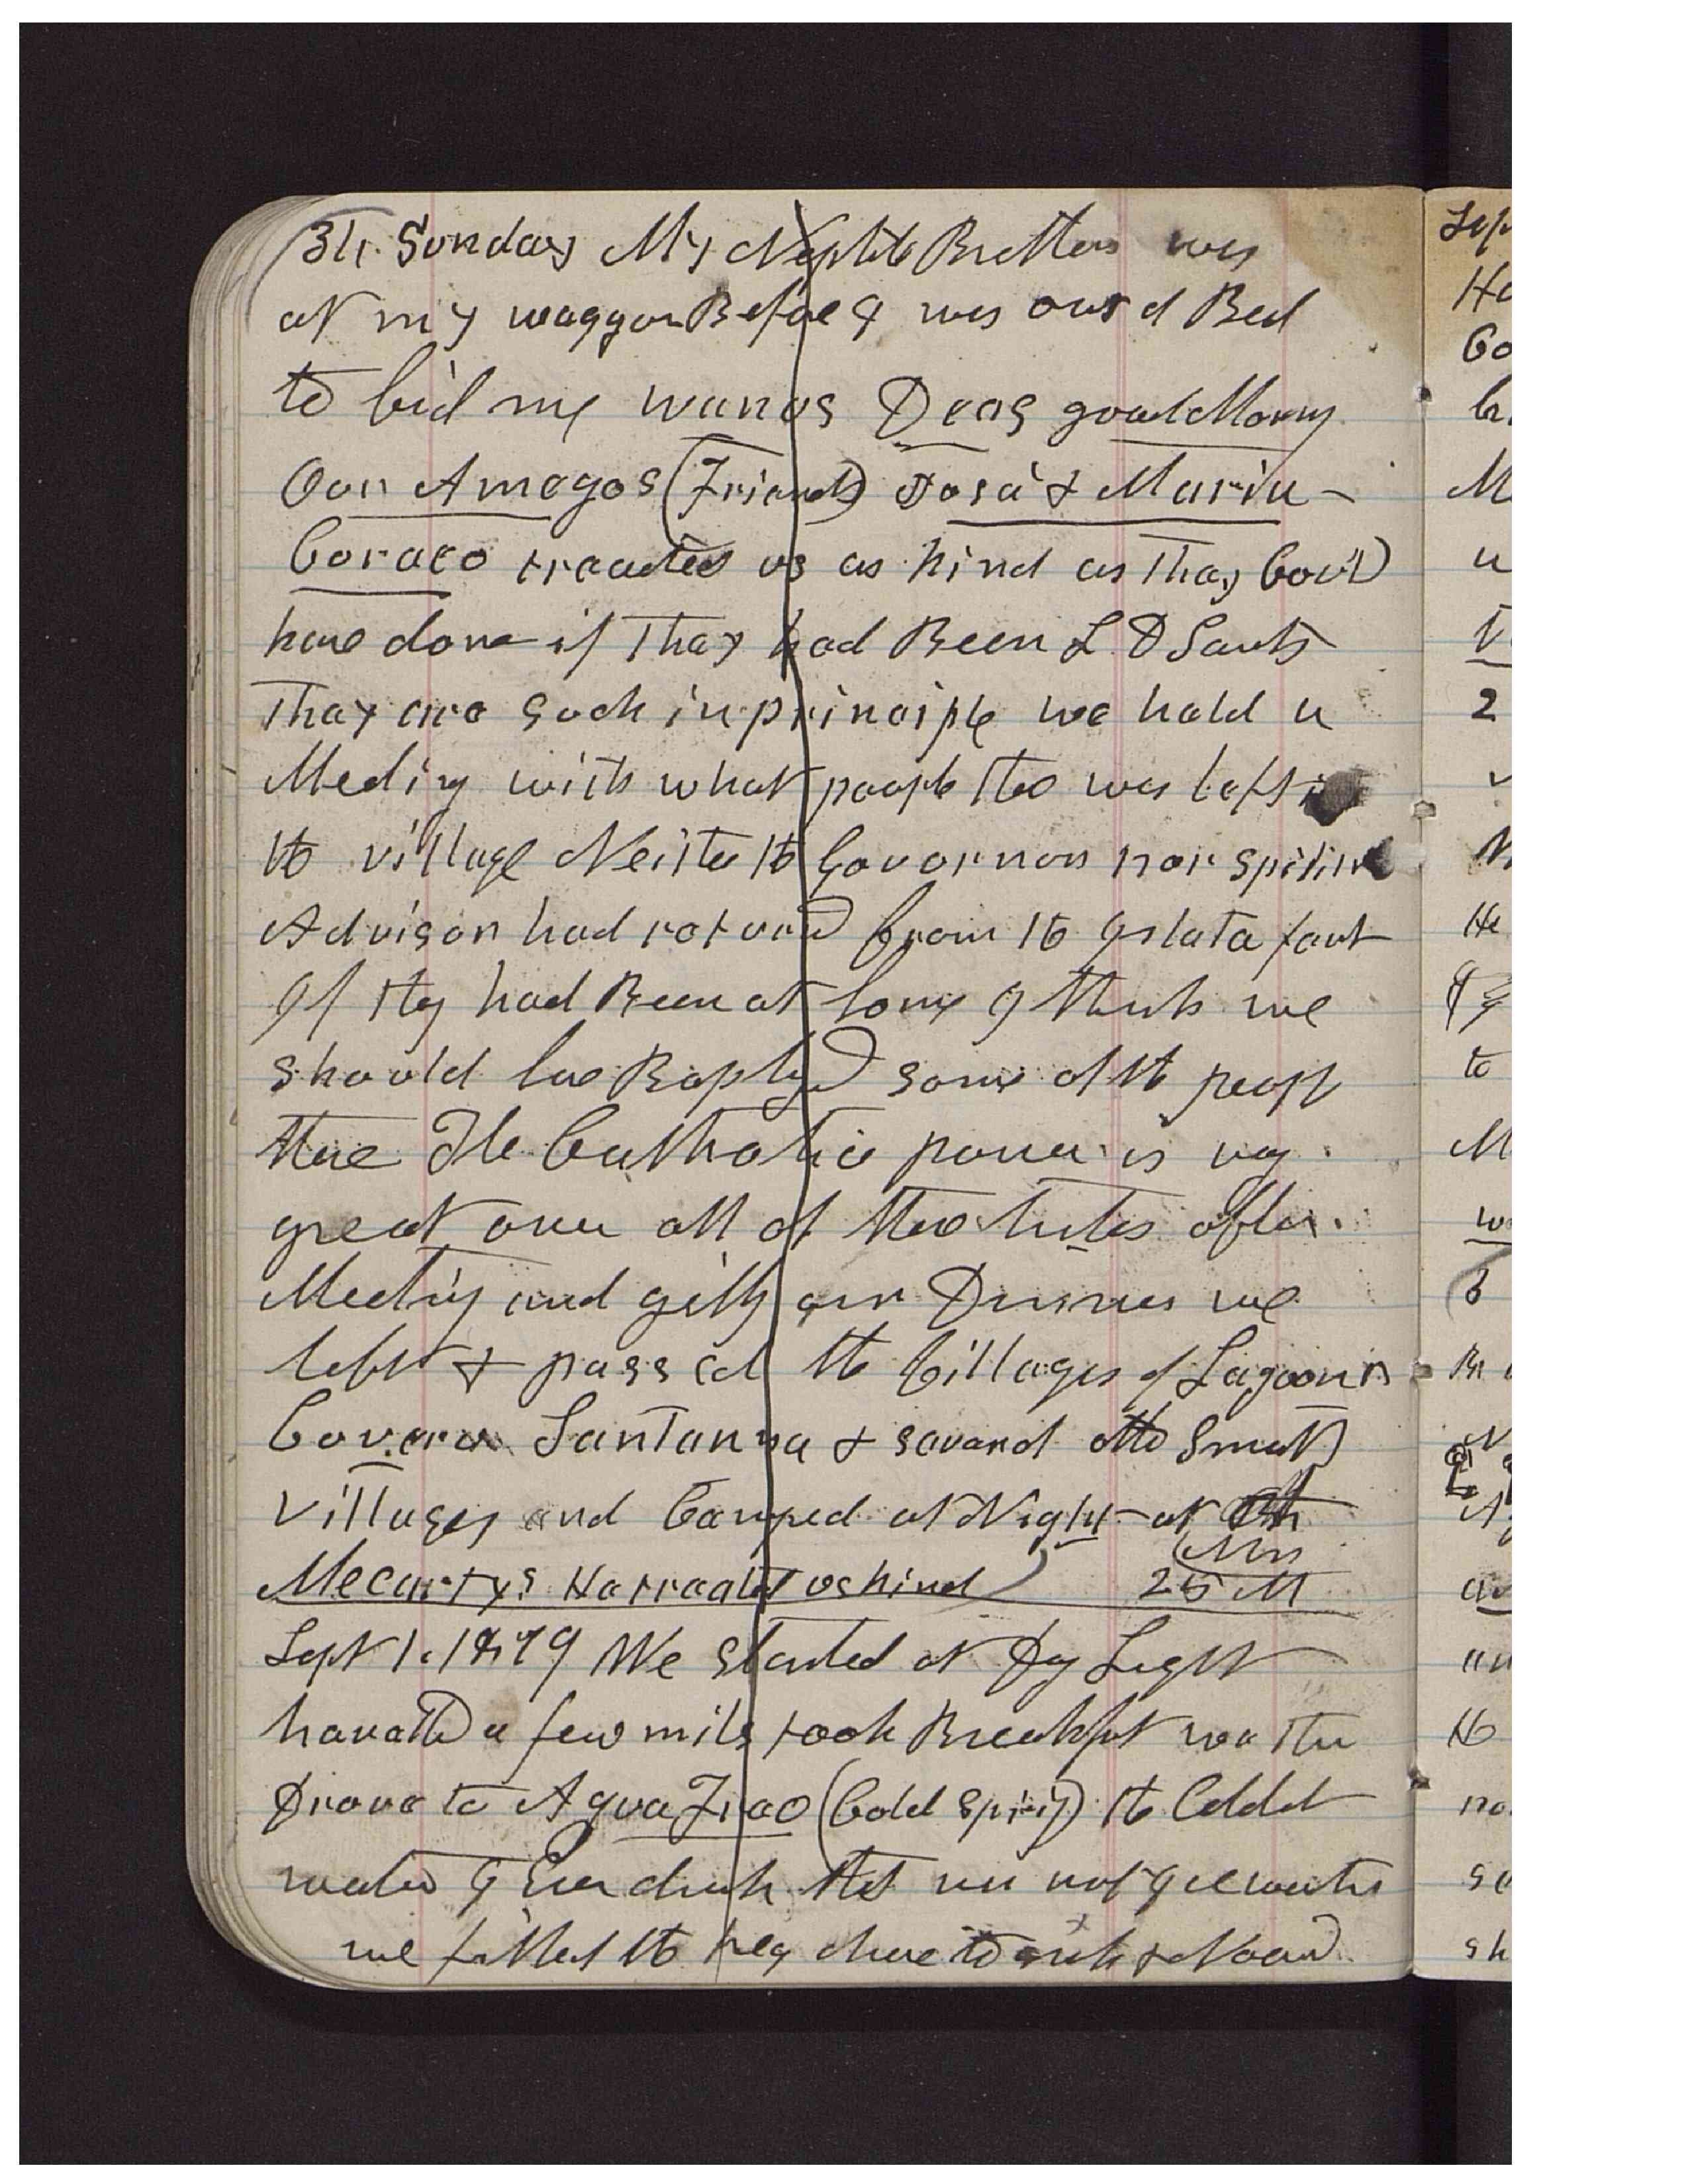 31. Sunday My Nephite Brothers was
at my waggon Before I was out of Bed
to bid me wanos Deas good Morny
Our Amegos (Friends) Josa & Maria
Coraco treated us as kind as Thay Could
have done if Thay had Been L D Saints
Thay are such in principle we held a
Meeting with what people that was left in
the village Neither the Governor nor spiritual
Advisor had returnd from the Isleta feast
If they had Been at home I think we
should have Baptized some of the people
there The Catholic power is very
great over all of these tribes after
Meeting and getting our Dinner we
left & passed the villages of Lagoonis
Covera Santanna & several other small
villages and Camped at Night at
Mrs
Mecartys treated us kind 25 M
Sept 1. 1879 We started at Day Light
traveled a few miles took Breakfast we then
Drove to Agua Frao (Cold spring) the Coldest
water I Ever drank that was not Ice water
we filled the keg drove to & Noond
Sep
to
2